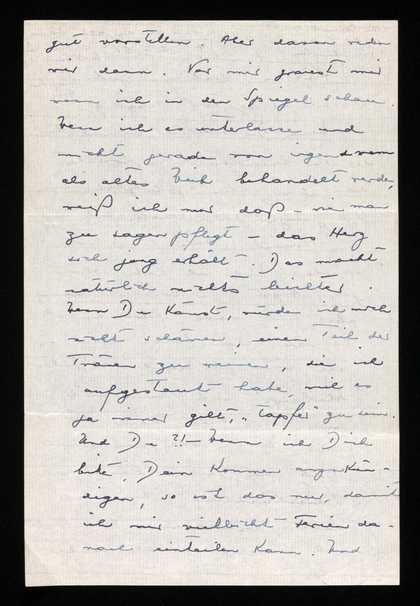 gut vorstellen. Aber davon reden
wir dann. Vor mir graust mir
wenn ich in den Spiegel schau.
Wenn ich es unterlasse und
nicht gerade von irgendwem
als altes Weib behandelt werde,
weiß ich nur daß – wie man
zu sagen pflegt – das Herz
sich jung erhält. Das macht
natürlich nichts leichter.
Wenn Du kämst, würde ich mich
nicht schämen, einen Teil der
Tränen zu weinen, die ich
aufgestaut habe, weil es
ja immer gilt, „tapfer" zu sein.
Und Du?!– Wenn ich Dich
bitte, Dein Kommen anzukün-
digen, so ist das nur, damit
ich mir vielleicht Ferien da-
nach einteilen kann. Und